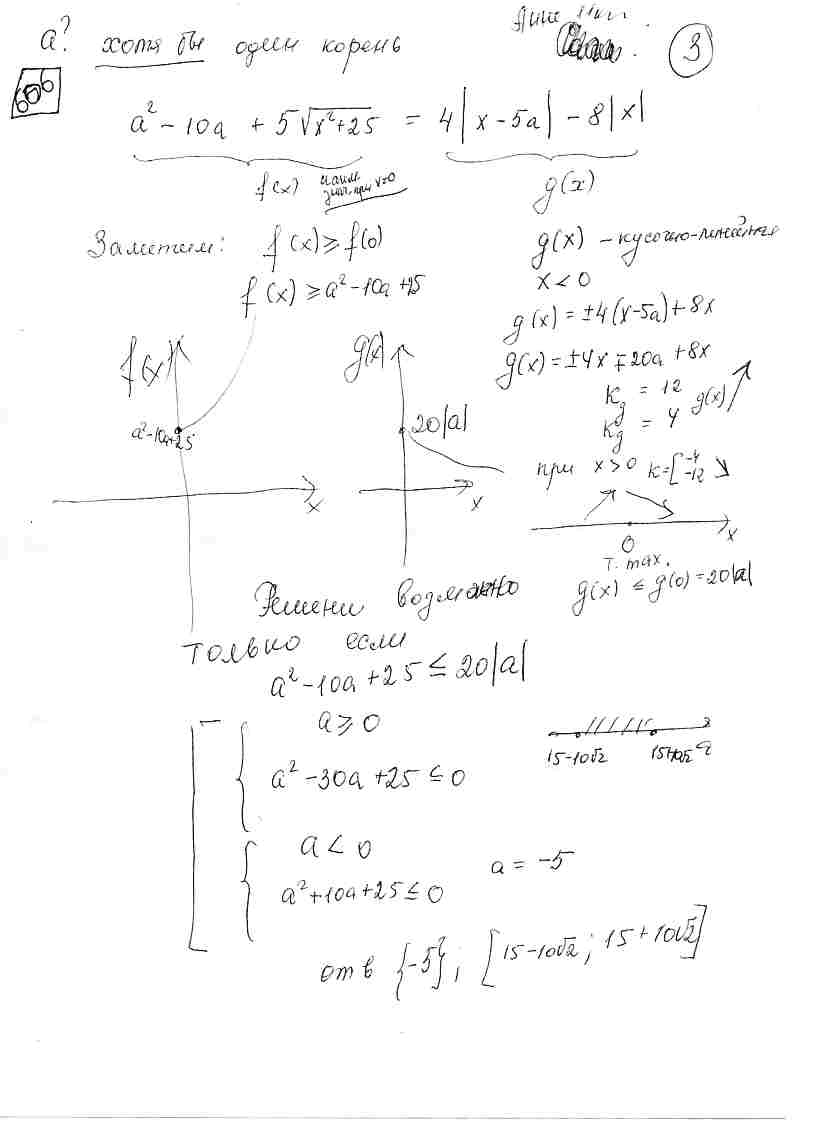 a? хотя бы один корень
3
606
a² - 10a + 5√x²+25 = 4|x-5a| - 8|x|
f(x) наим. знач. при x=0
g(x)
Заметим: f(x) ≥ f(0)
f(x) ≥ a² - 10a + 25
g(x) - кусочно-линейная
x < 0
g(x) = ±4(x-5a) + 8x
g(x) = ±4x ∓ 20a + 8x
k_g = 12
k_g = 4
g(x) ↗
при x > 0 k = [-4 -12 ↘
f(x)
a²-10a+25
x
g(x)
20|a|
x
0
x
т. max.
g(x) ≤ g(0) = 20|a|
Решени возможно
только если
a² - 10a + 25 ≤ 20|a|
a ≥ 0
a² - 30a + 25 ≤ 0
15-10√2 15+10√2 a
a < 0
a² + 10a + 25 ≤ 0
a = -5
отв {-5}; [15-10√2; 15+10√2]